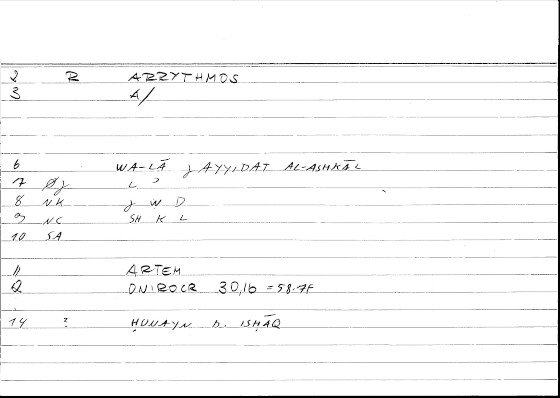 2 R ARRYTHMOS
3 A/
6 WA-LĀ ǧAYYIDAT AL-ASHKĀL
7 L ʾ
8 NK ǧ W D
9 NC SH K L
10 SA
11 ARTEM
ONIROCR 30,16 = 58.7F
14 : ḤUNAYN b. ISḤĀQ